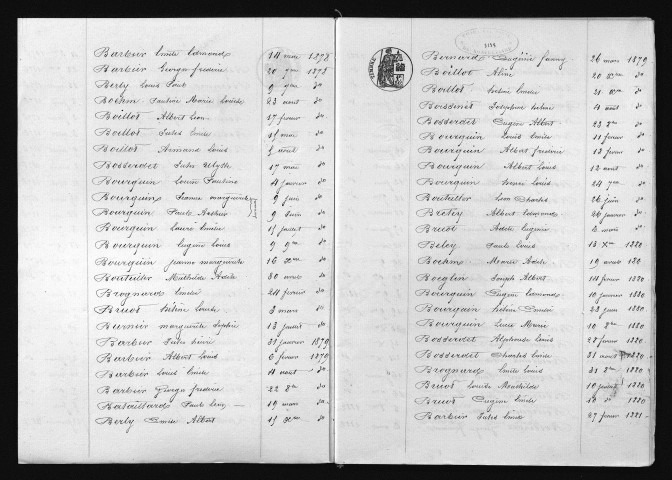 Barbier Emile Edmond 14 mai 1878
Barbier George frederic 20 9bre 1878
Berly Louis Paul 9 9bre do
Boehm Pauline Marie Louise 23 aout do
Boillot Albert Léon 17 fevrier do
Boillot Jules Emile 15 mai do
Boillot Armand Louis 1 aout do
Bosserdet Jules Ulysse 17 mai do
Bourquin Louise Pauline 4 janvier do
Bourquin Jeanne marguerite 9 juin do
Bourquin Paul Arthur 9 Juin do
Bourquin Laure Emilie 15 juillet do
Bourquin Eugène Louis 9 9bre do
Bourquin jeanne marguerite 16 Xbre do
Bouteiller Mathilde Adèle 30 aout do
Brognard Emélie 24 fevrier do
Bruot hélène Louise 3 mars do
Burnier marguerite Sophie 13 juillet do
Barbier Jules henri 31 janvier 1879
Barbier Albert Louis 6 fevrier 1879
Barbier Louis Emile 4 aout do
Barbier George frederic 22 8bre do
Bataillard Paul 19 mars do
Berly Emile Albert 15 Xbre do
1198
TIMBRE
Bernard Eugénie fanny 26 mars 1879
Boillot Aline 20 Xbre do
Boillot hélène Emilie 21 Xbre do
Bossinet Joséphine hélène 4 aout do
Bosserdet Eugène Albert 23 8bre do
Bourquin Louis Emile 21 fevrier do
Bourquin Albert frederic 13 fevrier do
Bourquin Albert Louis 12 aout do
Bourquin henri Louis 24 7bre do
Bouteiller Léon Charles 26 juin do
Bretey Albert Edmond 26 janvier do
Bruot Adèle Eugénie 2 mai do
Beley Paul Louis 13 Xbre 1880
Boehm Marie Adèle 19 aout 1880
Boeglin Joseph Albert 14 juin 1880
Bourquin Eugène Edmond 10 janvier 1880
Bourquin hélène Louise 23 juin 1880
Bourquin Lucie Marie 10 8bre 1880
Bosserdet Alphonse Louis 28 fevrier 1880
Bosserdet Charles Emile 31 aout 1880
Brognard Emile Louis 31 8bre 1880
Bruot Louise Mathilde 10 juillet 1880
Bruot Eugène Emile 18 do 1880
Barbier Jules Emile 27 fevrier 1881